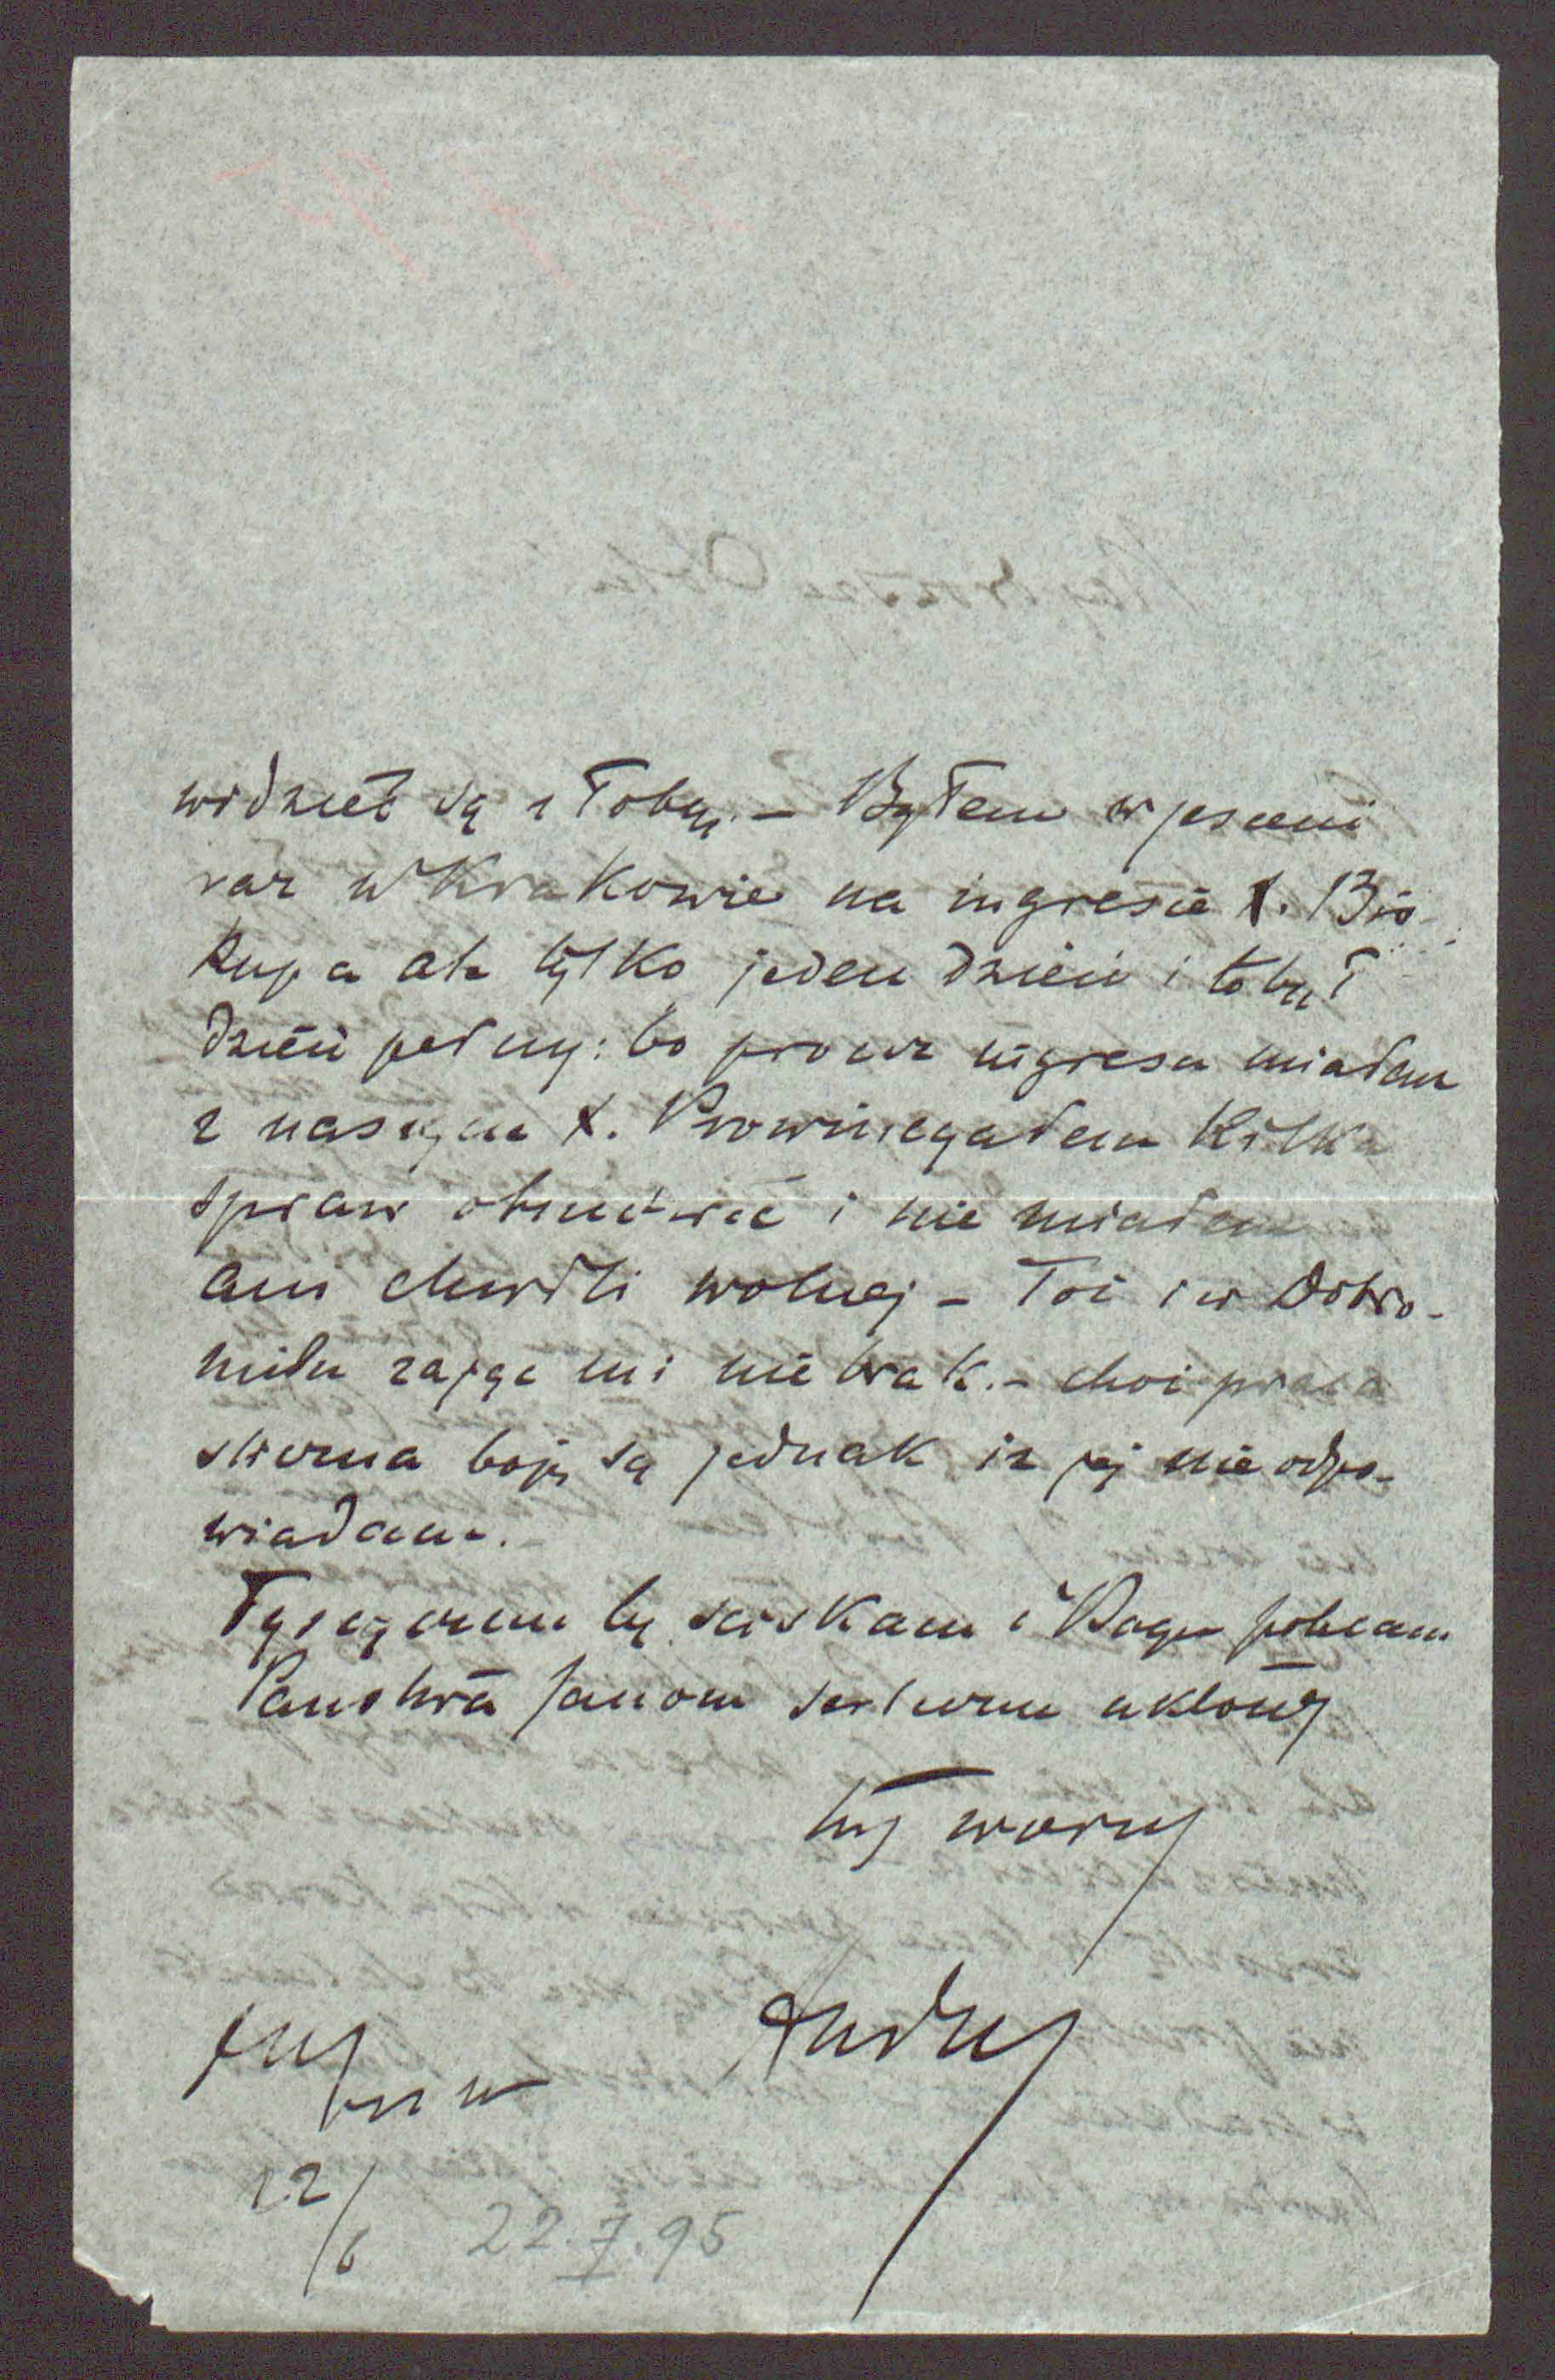 widzieć się z Tobą. – Byłem w jesieni
raz w Krakowie na ingresie X. Bis-
kupa ale tylko jeden dzień i to był
dzień pełny: bo prócz ingresu miałem
z naszym X. Prowincyałem kilka
spraw obmówić i nie miałem
ani chwili wolnej – Toć i w Dobro-
milu zajęć mi nie brak. – choć praca
boję się jednak iż jej nie odpo-
wiadam. –
Tysiącznie Cię ściskam i Bogu polecam
Państwa Janom serdeczne ukłony
Twój
Andrzej
22/6 22.I.95